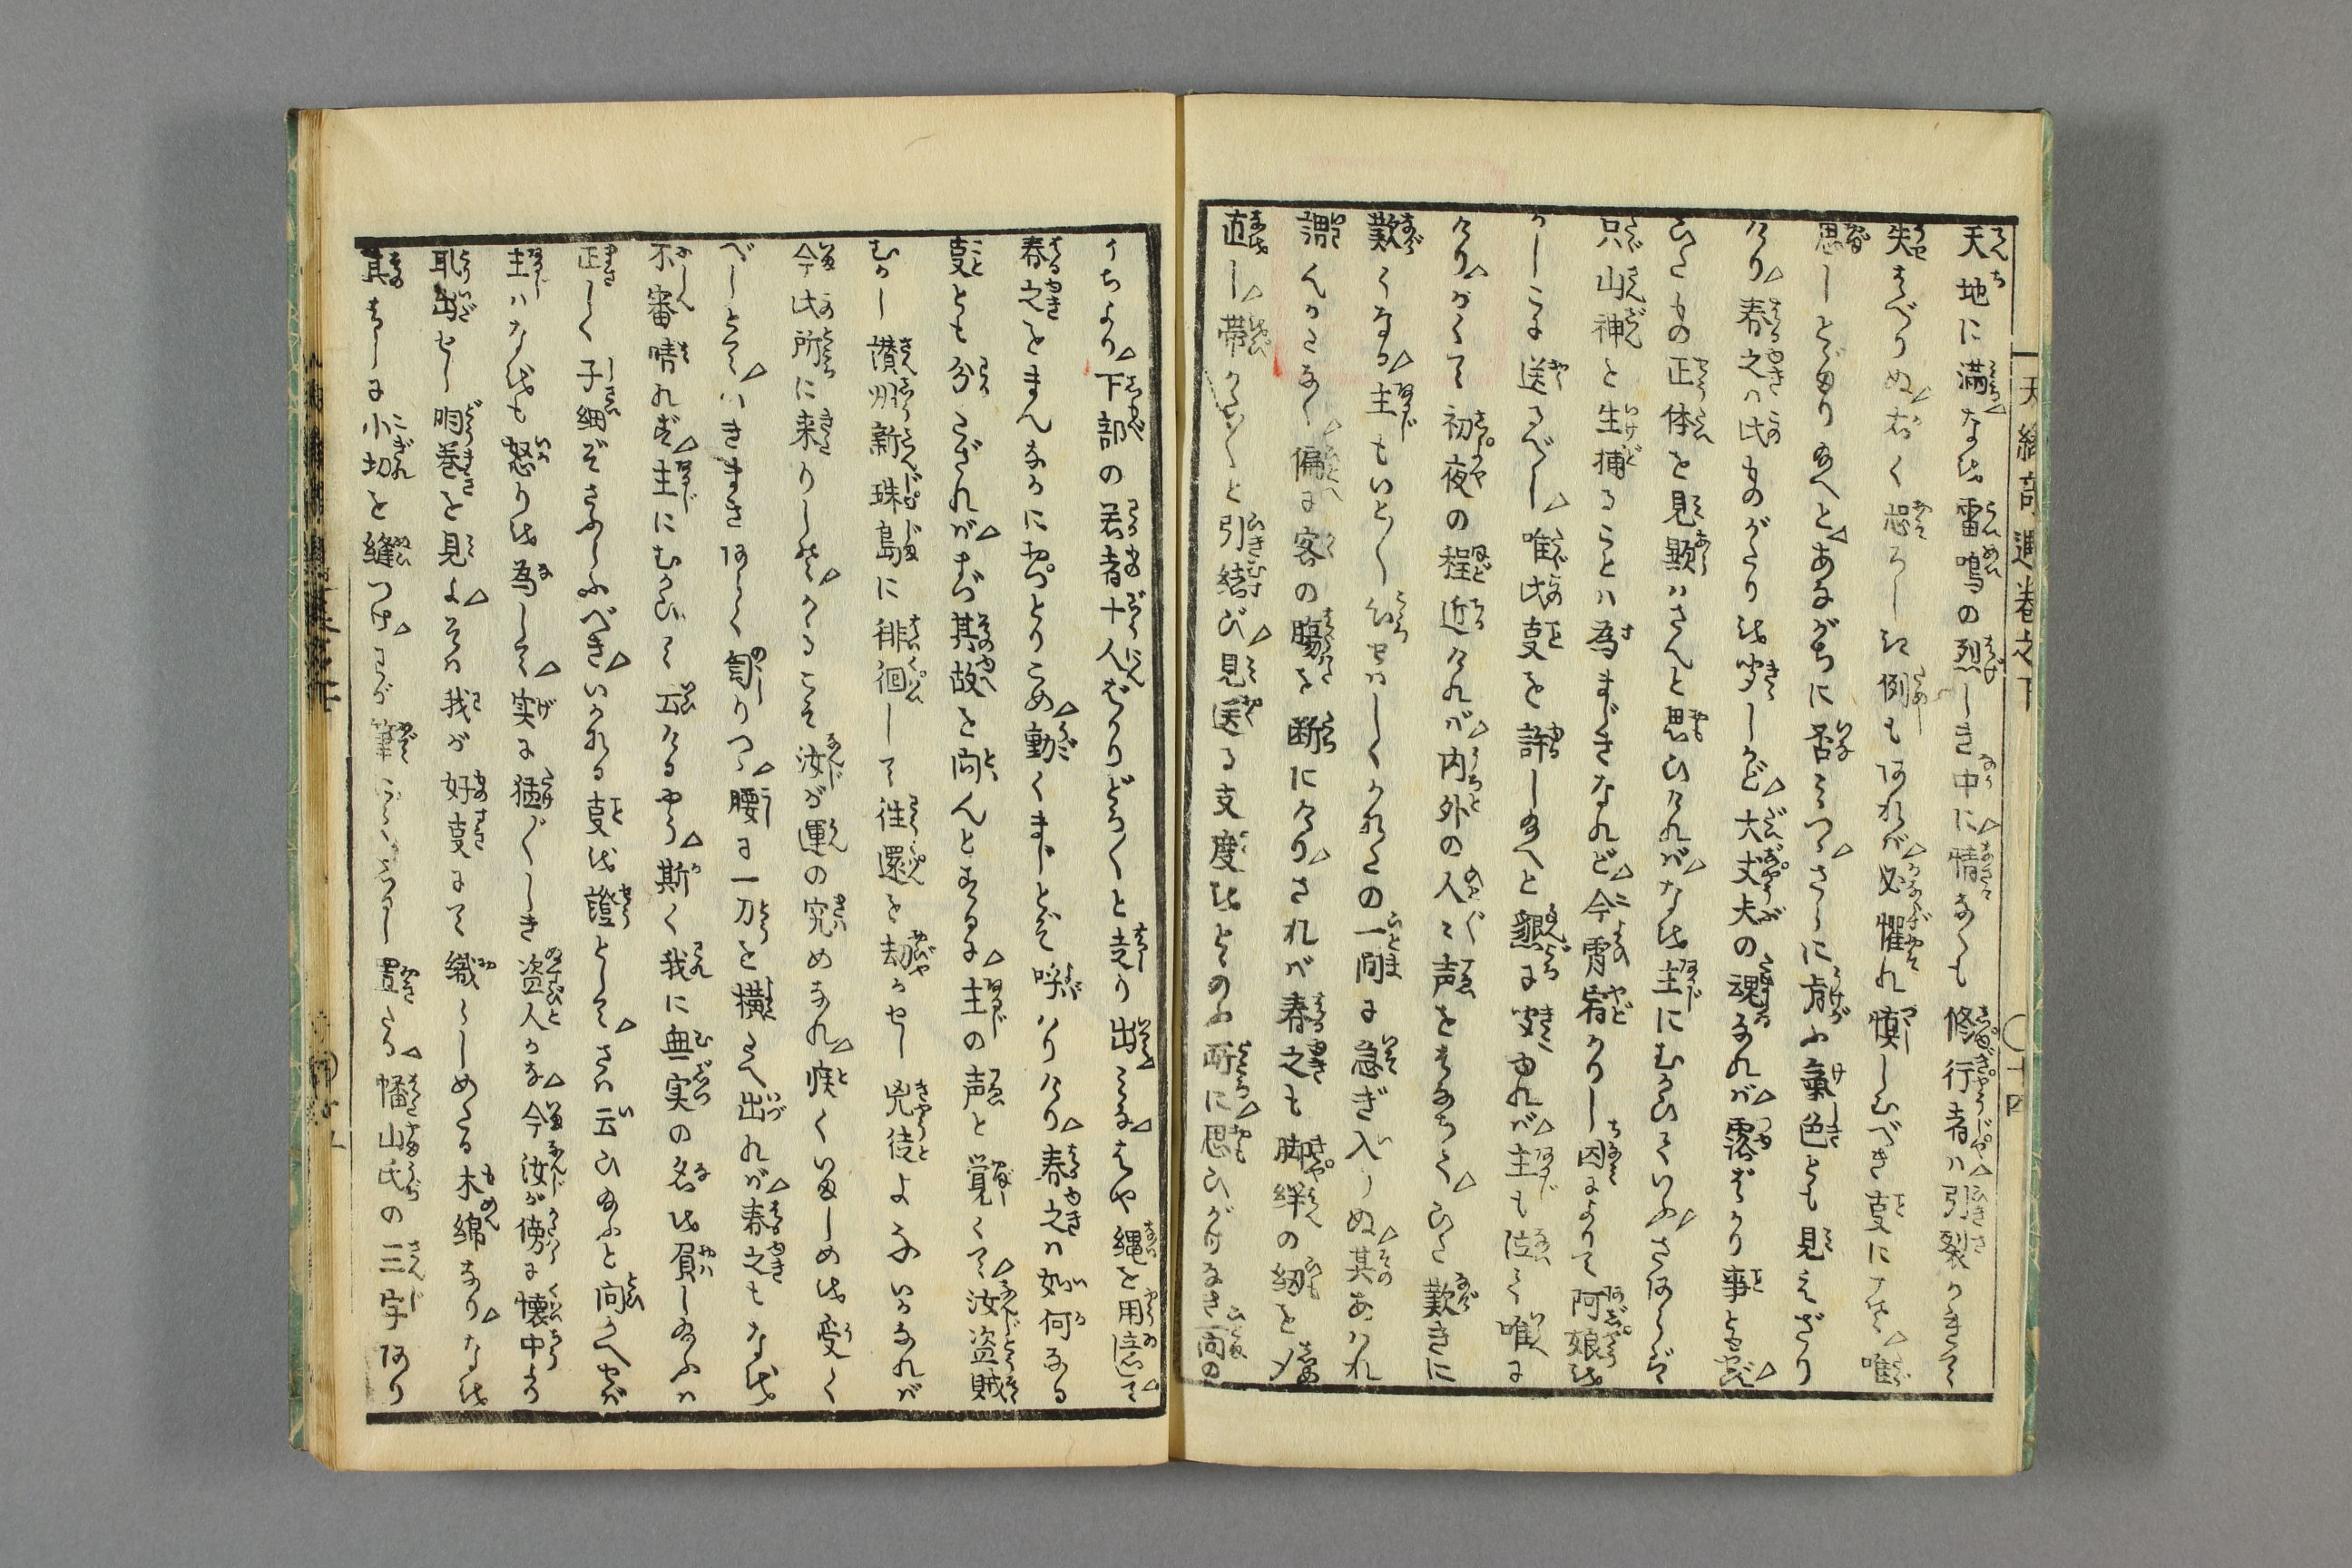 天縁奇遇巻之下 ○十四
天地に満なは雷鳴の烈しき中に情なくも修行者ハ引裂かきて
失はべりぬ若く恐ろしき例もあれバ必懼れ慎しむべき事にこそ唯
思しとゞまり給へとあながちに否みつゝさらに肯ふ氣色とも見えざり
けり春之ハ此ものがたりを聞しかど大丈夫の魂なれバ露ばかり事ともせず
ひたすら正体を見顕ハさんと思ひけれバなほ主にむかひていふさあらバ
只山神と生捕ることハ為まじきなれど今宵宿かりし因によりて阿娘を
かしこに送るべし唯此事を許し給へと懇に聞ゆれバ主も泣て唯に
けりかくて初夜の程近けれバ内外の人々声をはなちてひた歎きに
歎くなる主もいと心せハしくかれこの一間に急ぎ入りぬ其あハれ
謂んかたなく偏に客の膓を断にけりされバ春之も脚絆の紐を〆
直し帯かた〳〵と引結び見送る支度をとゝのふ所に思ひがけなき一間の
うちより下部の若者十人ばかりどろ〳〵と走り出こなはや縄を用意して
春之をまんなかにおつとりこめ動くまじとぞ呼ハりけり春之ハ如何なる
事とも分ざれバまづ其故を問んとするに主の声と覚しくて汝盗賊
むかし讃州新珠島に徘徊して往還を劫かせし兇徒よないかなれバ
今此所に来りしぞかゝるこそ汝が運の究めなれ疾くいましめを受く
べしとていきまきあらく罵りつゝ腰に一刀を横たへ出れバ春之もなほ
不審晴れず主にむかひて云けるやう斯く我に無実の名を屓し給ふハ
正しく子細ぞさふらふべきいかなる事を證としてさハ云ひ給ふと問かへせバ
主ハなほも怒りを為して実に猛〴〵しき盗人かな今汝が傍に懐中より
取出せし胴巻を見よそハ我が好事にて織らしめたる木綿なりなほ
其はしに小切を縫つけわが筆にてしるし置たる幡山氏の三字あり